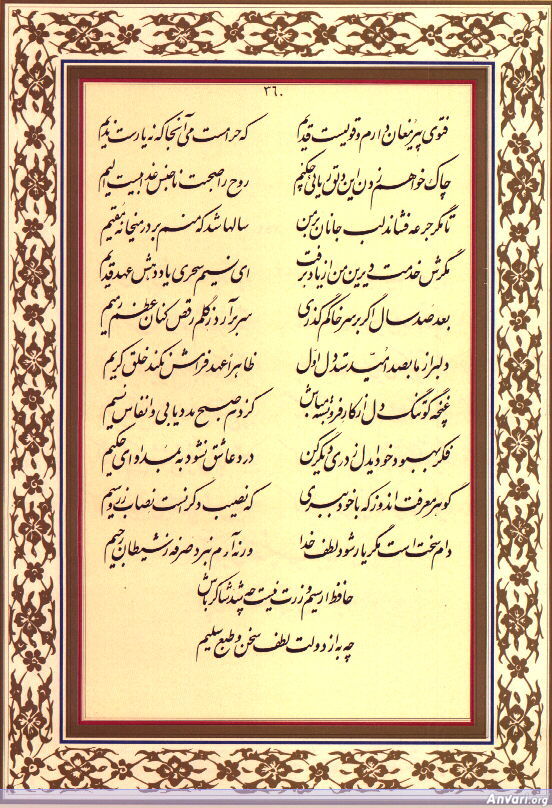 ۳۶۰
فتوی پیر مغان دارم و قولیست قدیم که حرامست می آنجا که نه یارست ندیم
چاک خواهم زدن این دلق ریائی چکنم روح را صحبت ناجنس عذابیست الیم
تا مگر جرعه فشاند لب جانان بر من سالها شد که منم بر در میخانه مقیم
مگرش خدمت دیرین من از یاد برفت ای نسیم سحری یاد دهش عهد قدیم
بعد صد سال اگر بر سر خاکم گذری سر برآرد ز گلم رقص کنان عظم رمیم
دلبر از ما بصد امید ستد اول دل ظاهرا عهد فرامش نکند خلق کریم
غنچه گو تنگ دل از کار فروبسته مباش کز دم صبح مدد یابی و انفاس نسیم
فکر بهبود خود ایدل ز دری دیگر کن درد عاشق نشود به بمداوای حکیم
گوهر معرفت اندوز که با خود ببری که نصیب دگرانست نصاب زر و سیم
دام سختست مگر یار شود لطف خدا ورنه آدم نبرد صرفه ز شیطان رجیم
حافظ ار سیم و زرت نیست چه شد شاکر باش
چه به از دولت لطف سخن و طبع سلیم
Anvari.org